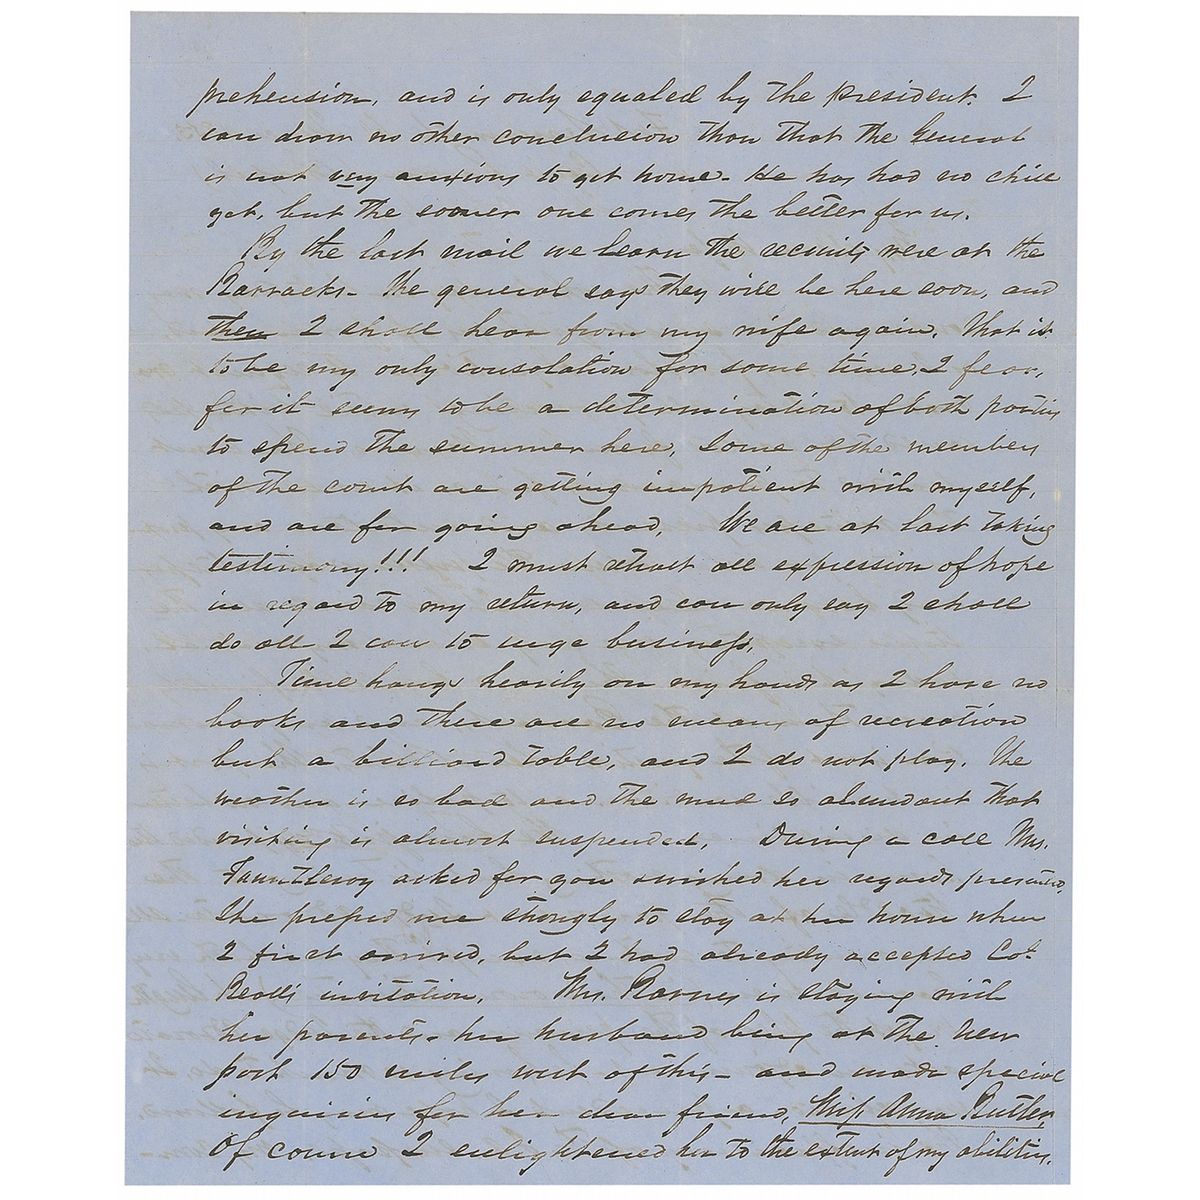 prehension, and is only equaled by the president. I
can draw no other conclusion than that the General
is not very anxious to get home. He has had no chill
yet, but the sooner one comes the better for us.
By the last mail we learn the recruits were at the
Barracks. The general says they will be here soon, and
then I shall hear from my wife again. That is
to be my only consolation for some time, I fear,
for it seems to be a determination of both parties
to spend the summer here, some of the members
of the court are getting impatient with myself,
and are for going ahead. We are at last taking
testimony!!! I must retract all expression of hope
in regard to my return, and can only say I shall
do all I can to urge business.
Time hangs heavily on my hands as I have no
books and there are no means of recreation
but a billiard table, and I do not play. The
weather is so bad and the mud so abundant that
visiting is almost suspended. During a call Mrs.
Fauntleroy asked for you & wished her regards presented.
She pressed me strongly to stay at her house when
I first arrived, but I had already accepted Col
Beall's invitation. Mrs. Barnes is staying with
her parents - her husband being at the new
post 150 miles west of this - and made special
inquiries for her dear friend, Miss Anna Rutler,
Of course I enlightened her to the extent of my abilities.